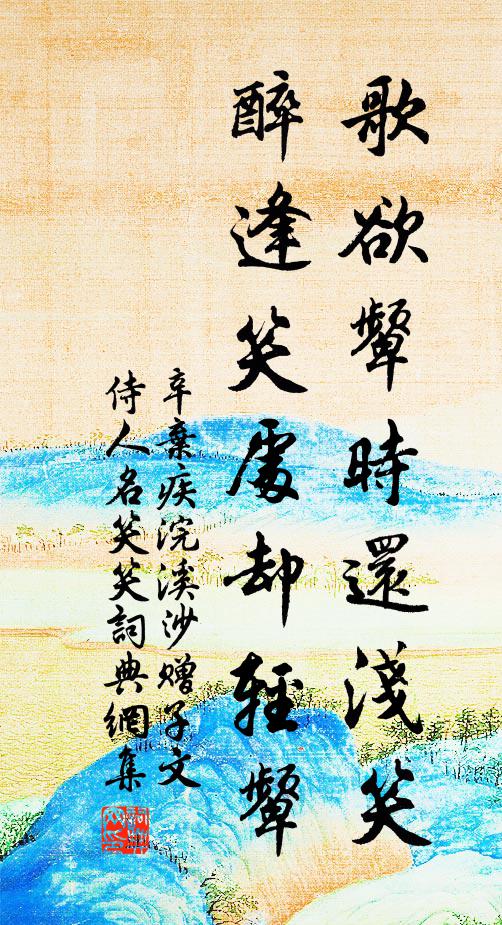 歌欲顰時還淺笑
醉逢笑處却輕顰
辛棄疾浣溪沙贈子文
侍人名笑笑詞典網集